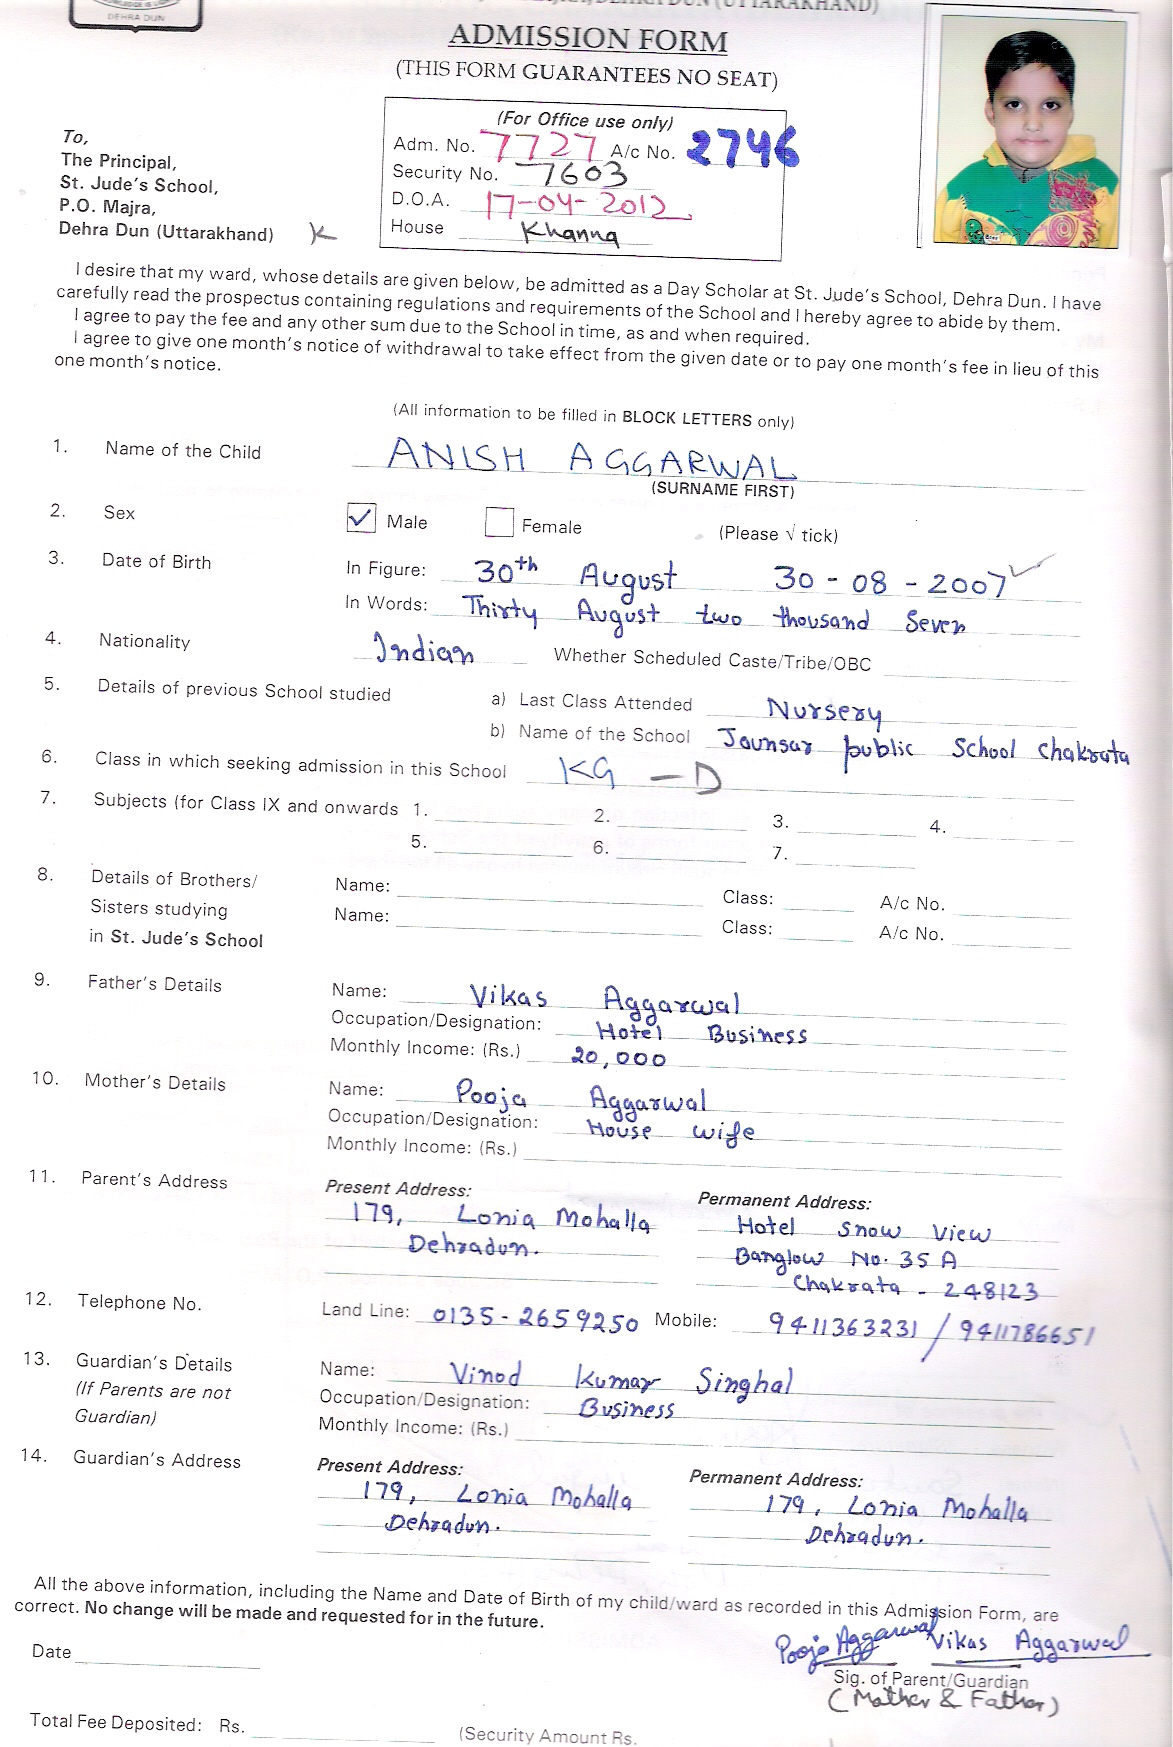 DEHRA DUN
ADMISSION FORM
(THIS FORM GUARANTEES NO SEAT)
To,
The Principal,
St. Jude's School,
P.O. Majra,
Dehra Dun (Uttarakhand) K
(For Office use only)
Adm. No. 7727 A/c No. 2746
Security No. 7603
D.O.A. 17-04-2012
House Khanna
I desire that my ward, whose details are given below, be admitted as a Day Scholar at St. Jude's School, Dehra Dun. I have
carefully read the prospectus containing regulations and requirements of the School and I hereby agree to abide by them.
I agree to pay the fee and any other sum due to the School in time, as and when required.
I agree to give one month's notice of withdrawal to take effect from the given date or to pay one month's fee in lieu of this
one month's notice.
(All information to be filled in BLOCK LETTERS only)
1. Name of the Child ANISH AGGARWAL
(SURNAME FIRST)
2. Sex ✓ Male Female (Please √ tick)
3. Date of Birth In Figure: 30th August 30-08-2007 ✓
In Words: Thirty August two thousand Seven
4. Nationality Indian Whether Scheduled Caste/Tribe/OBC
5. Details of previous School studied a) Last Class Attended Nursery
b) Name of the School Jaunsar public School Chakrata
6. Class in which seeking admission in this School KG - D
7. Subjects (for Class IX and onwards 1. 2. 3. 4.
5. 6. 7.
8. Details of Brothers/ Name: Class: A/c No.
Sisters studying Name: Class: A/c No.
in St. Jude's School
9. Father's Details Name: Vikas Aggarwal
Occupation/Designation: Hotel Business
Monthly Income: (Rs.) 20,000
10. Mother's Details Name: Pooja Aggarwal
Occupation/Designation: House wife
Monthly Income: (Rs.)
11. Parent's Address Present Address: Permanent Address:
179, Lonia Mohalla Hotel Snow View
Dehradun. Banglow No. 35 A
Chakrata - 248123
12. Telephone No. Land Line: 0135-2659250 Mobile: 9411363231 / 9411786651
13. Guardian's Details Name: Vinod Kumar Singhal
(If Parents are not Occupation/Designation: Business
Guardian) Monthly Income: (Rs.)
14. Guardian's Address Present Address: Permanent Address:
179, Lonia Mohalla 179, Lonia Mohalla
Dehradun. Dehradun.
All the above information, including the Name and Date of Birth of my child/ward as recorded in this Admission Form, are
correct. No change will be made and requested for in the future.
Pooja Aggarwal Vikas Aggarwal
Date
Sig. of Parent/Guardian
(Mother & Father)
Total Fee Deposited: Rs. (Security Amount Rs.